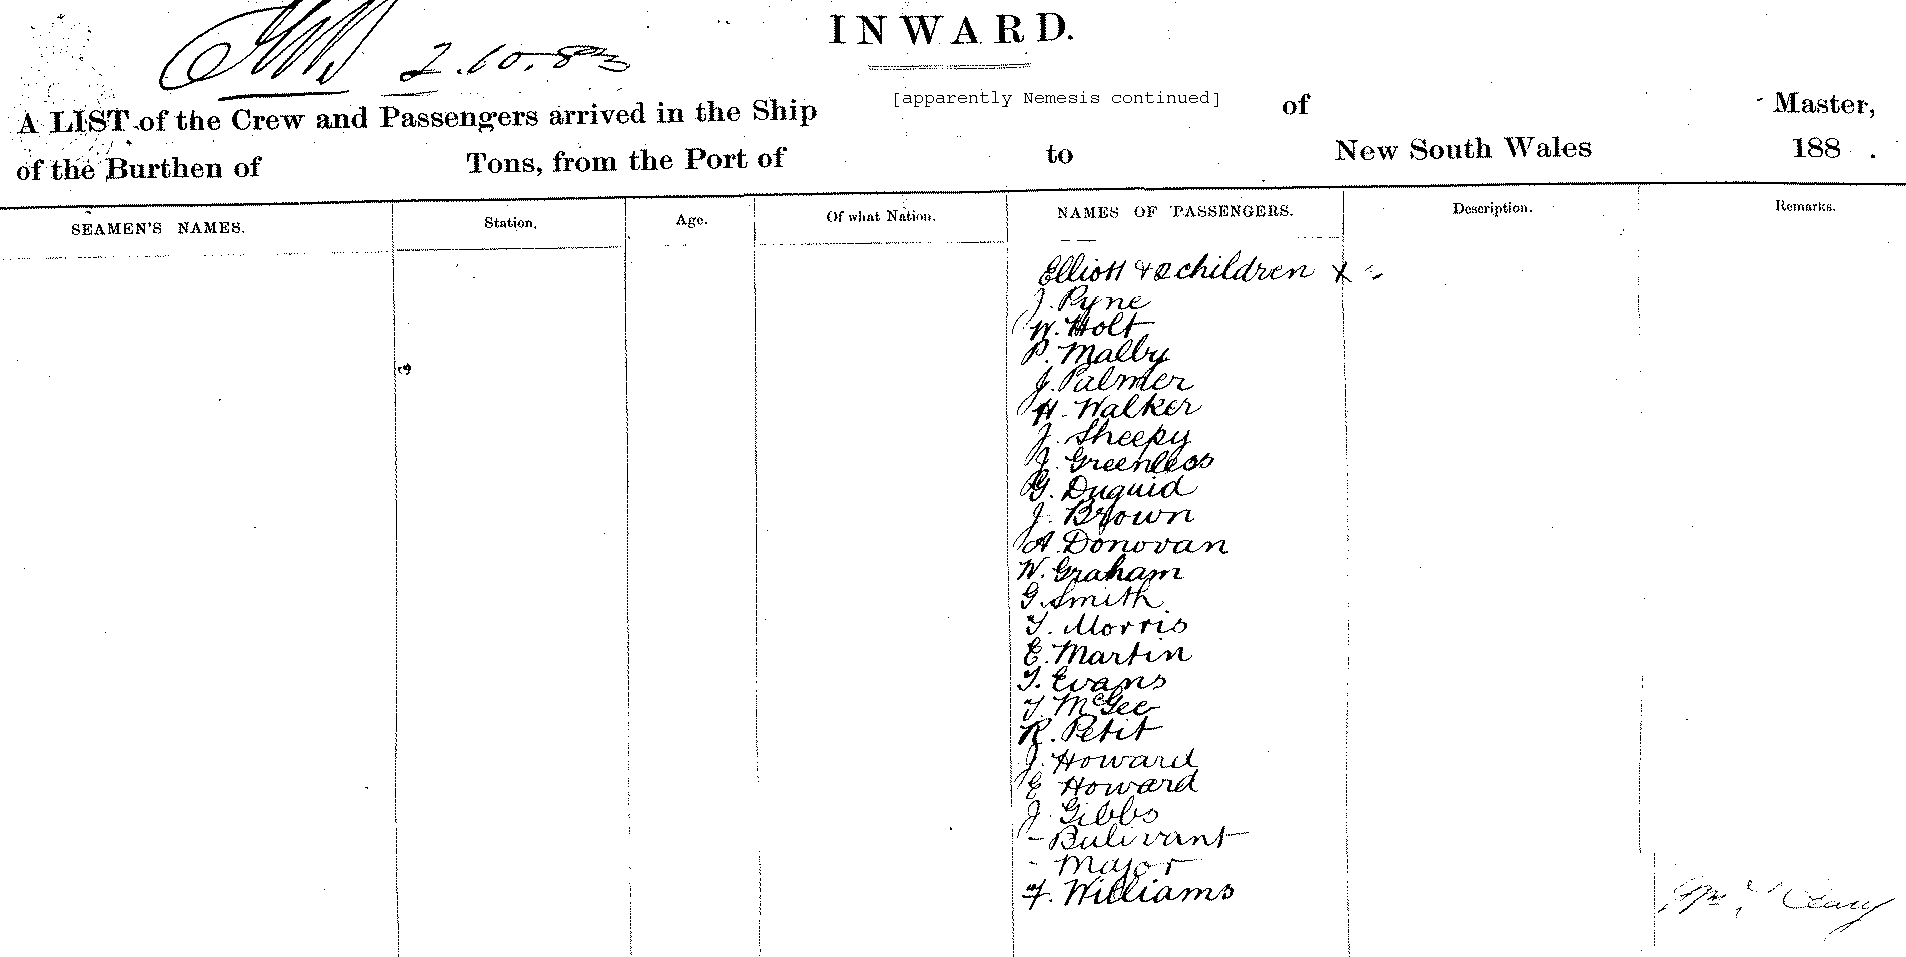 INWARD.
2.10.83
A LIST of the Crew and Passengers arrived in the Ship [apparently Nemesis continued] of Master,
of the Burthen of Tons, from the Port of to New South Wales 188 .
SEAMEN'S NAMES. Station. Age. Of what Nation. NAMES OF PASSENGERS. Description. Remarks.
Elliott & 2 children x
J. Pyne
W. Holt
P. Malby
J. Palmer
H. Walker
J. Sheepy
J. Greenless
G. Duguid
J. Brown
A. Donovan
W. Graham
G. Smith
T. Morris
E. Martin
T. Evans
T. McGee
R. Petit
J. Howard
E Howard
J. Gibbs
- Bulivant
- Major
F. Williams